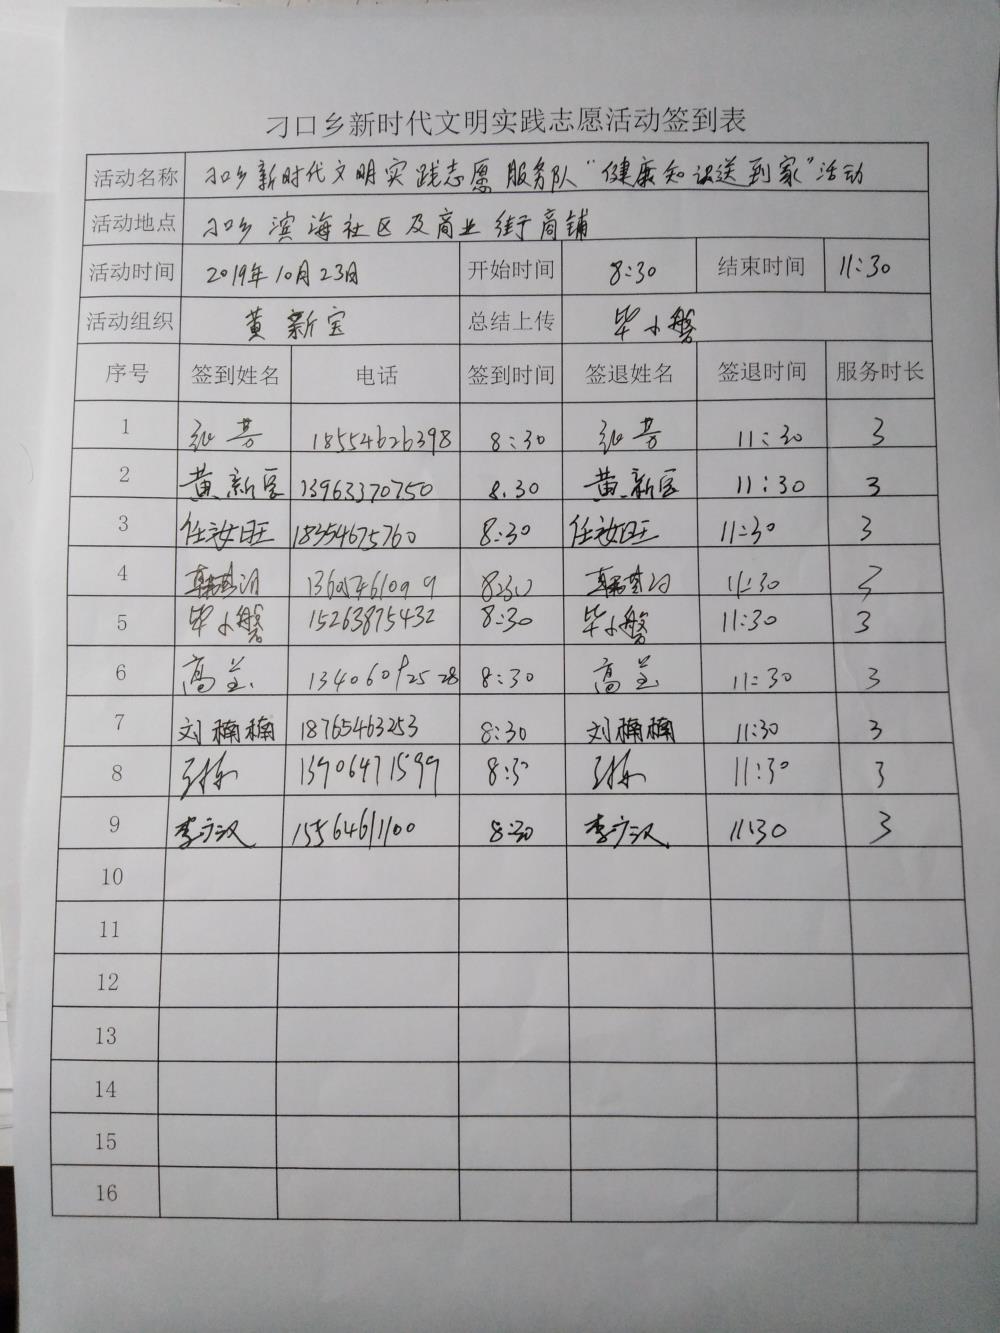 刁口乡新时代文明实践志愿活动签到表
活动名称 刁口乡新时代文明实践志愿服务队“健康知识送到家”活动
活动地点 刁口乡滨海社区及商业街商铺
活动时间 2019年10月23日 开始时间 8:30 结束时间 11:30
活动组织 黄新宝 总结上传 毕小磐
序号 签到姓名 电话 签到时间 签退姓名 签退时间 服务时长
1 张芳 18554626398 8:30 张芳 11:30 3
2 黄新宝 13963370750 8.30 黄新宝 11:30 3
3 任汝旺 18354675760 8:30 任汝旺 11:30 3
4 8:30 11:30 3
5 毕小磐 15263875432 8:30 毕小磐 11:30 3
6 高 13406092528 8:30 高 11:30 3
7 刘楠楠 18765463253 8:30 刘楠楠 11:30 3
8 13906471599 8:30 11:30 3
9 李广汉 15564611100 8:30 李广汉 11:30 3
10
11
12
13
14
15
16